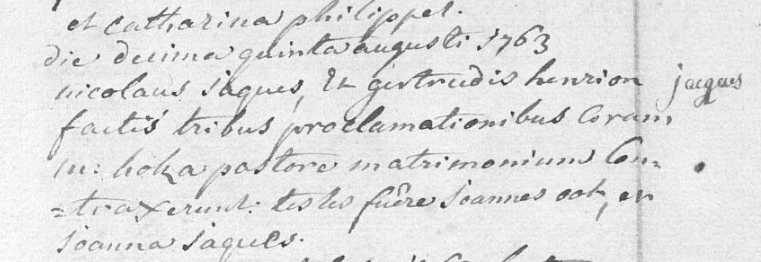 et catharina philippet.
die decima quinta augusti 1763
nicolaus jaques, Et gertrudis henrion jacques
factis tribus proclamationibus Coram
m: hoka pastore matrimonium Con=
=traxerunt: testes fuêre joannes ook, et
joanna jaques.